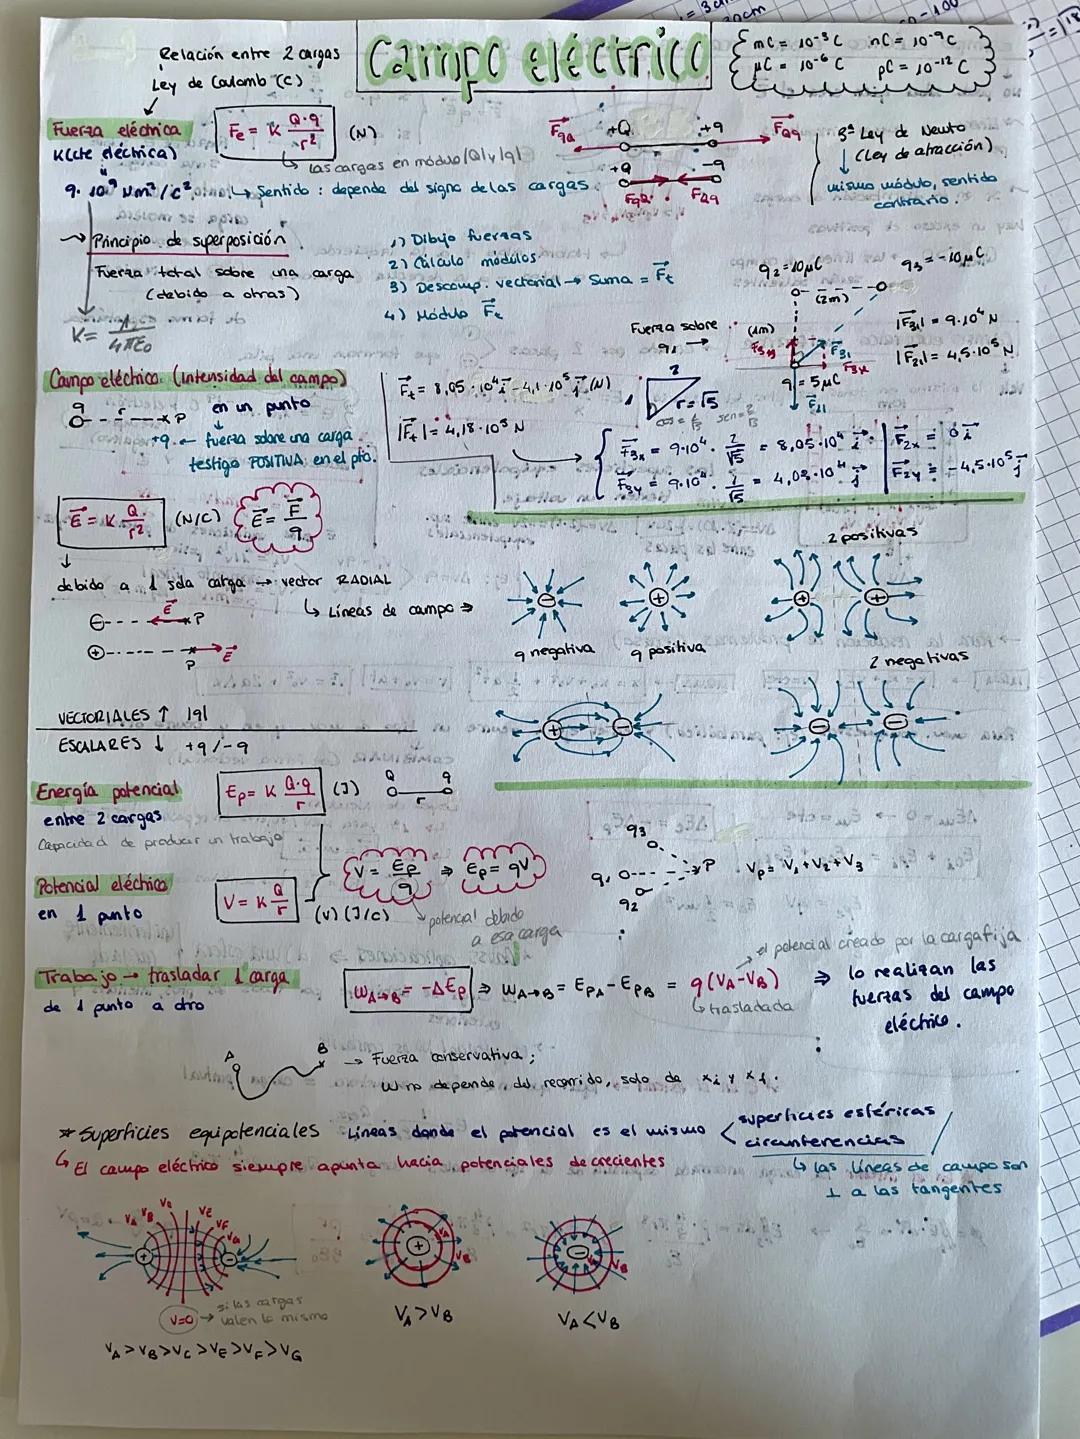 Campo eléctrico
mC = 10⁻³ C nC = 10⁻⁹ C
μC = 10⁻⁶ C pC = 10⁻¹² C
Relación entre 2 cargas
Ley de Coulomb (C)
Fuerza eléctrica
Fe = K Q·q / r² (N)
K(cte eléctrica)
9·10⁹ Nm²/C²
las cargas en módulo |Q| y |q|
↳ Sentido: depende del signo de las cargas
FqQ +Q +q FQq
+Q -q
FqQ FQq
3ª Ley de Newto
(Ley de atracción)
mismo módulo, sentido
contrario.
Principio de superposición
Fuerza total sobre una carga
(debido a otras)
K = 1 / 4πε₀
1) Dibujo fuerzas
2) Cálculo módulos
3) Descomp. vectorial → Suma = Ft
4) Módulo Ft
q2 = 10μC q3 = -10μC
(2m)
Fuerza sobre
q1 →
(1m)
F3y F31
F3x
q1 = 5μC
F21
|F31| = 9·10⁴ N
|F21| = 4,5·10⁵ N
Campo eléctrico (Intensidad del campo)
q r P en un punto
+q ← fuerza sobre una carga
testigo POSITIVA en el pto.
Ft = 8,05·10⁴ i - 4,1·10⁵ j (N)
|Ft| = 4,18·10⁵ N
2
1 r = √5
F3x = 9·10⁴ · 2/√5 = 8,05·10⁴ i
F3y = 9·10⁴ · 1/√5 = 4,02·10⁴ j
F2x = 0 i
F2y = -4,5·10⁵ j
E = K Q / r² (N/C) E = F / q
debido a 1 sola carga → vector RADIAL
↳ Líneas de campo ⇒
⊖ E P
⊕ P E
q negativa
q positiva
2 positivas
2 negativas
VECTORIALES ↑ |q|
ESCALARES ↓ +q/-q
Energía potencial
entre 2 cargas
Capacidad de producir un trabajo
Ep = K Q·q / r (J)
Q q
r
Potencial eléctrico
en 1 punto
V = K Q / r (V) (J/C)
V = Ep / q ⇒ Ep = qV
potencial debido
a esa carga
q3
q1 P
q2
Vp = V1 + V2 + V3
el potencial creado por la carga fija
Trabajo → trasladar 1 carga
de 1 punto a otro
WA→B = -ΔEp ⇒ WA→B = EpA - EpB = q(VA - VB)
↳ trasladada
⇒ lo realizan las
fuerzas del campo
eléctrico.
A B → Fuerza conservativa;
W no depende del recorrido, solo de xi y xf.
* Superficies equipotenciales Líneas donde el potencial es el mismo
superficies esféricas
circunferencias
↳ El campo eléctrico siempre apunta hacia potenciales decrecientes
↳ las líneas de campo son
⊥ a las tangentes
VA VB VC VE VF VG
V=0 → si las cargas
valen lo mismo
VA > VB > VC > VE > VF > VG
VA VB
VA > VB
VB
VA < VB